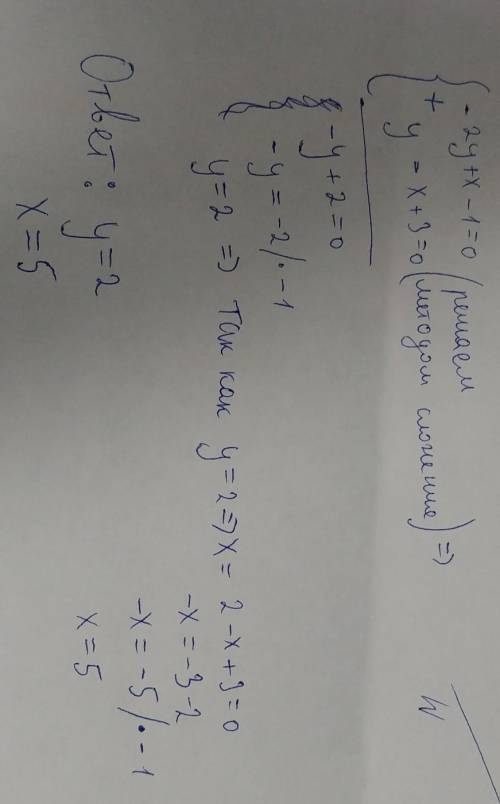 { - 2y + x - 1 = 0 (решаем
+ y - x + 3 = 0 (методом сложения) =>
- y + 2 = 0
- y = -2 / · -1
y = 2 => Так как y = 2 => x = 2 - x + 3 = 0
-x = -3 - 2
-x = -5 / · -1
x = 5
Ответ: y = 2
x = 5